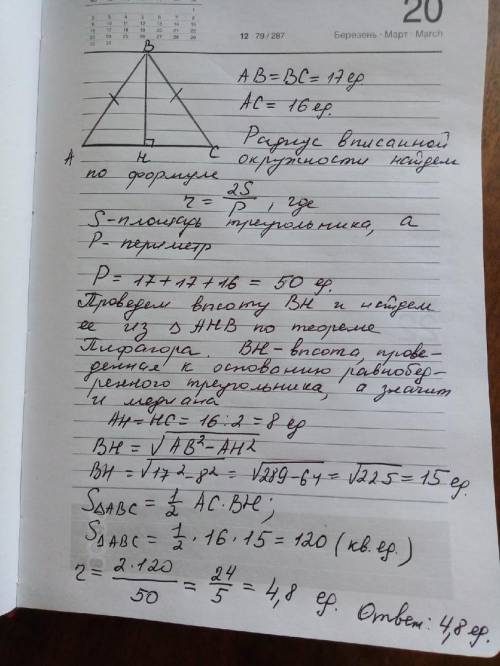 20
12 79 / 287
Березень · Март · March
B
A
H
C
AB = BC = 17 ед
AC = 16 ед.
Радиус вписанной
окружности найдем
по формуле
r = 2S/P, где
S - площадь треугольника, а
P - периметр
P = 17 + 17 + 16 = 50 ед.
Проведем высоту BH и найдем
ее из △ AHB по теореме
Пифагора. BH - высота, прове-
денная к основанию равнобед-
ренного треугольника, а значит
и медиана
AH = HC = 16 : 2 = 8 ед
BH = √AB² - AH²
BH = √17² - 8² = √289 - 64 = √225 = 15 ед.
S△ABC = 1/2 AC · BH;
S△ABC = 1/2 · 16 · 15 = 120 (кв. ед.)
r = 2 · 120/50 = 24/5 = 4,8 ед.
Ответ: 4,8 ед.